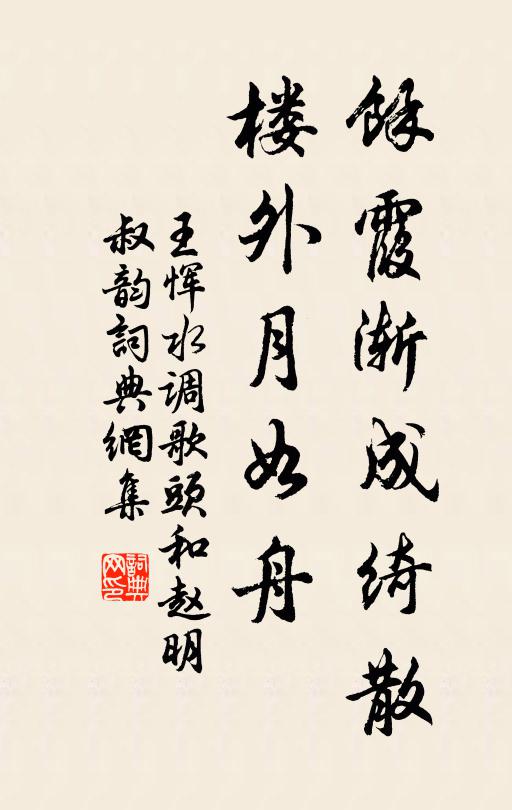 馀霞渐成绮散
楼外月如舟
王恽水调歌頭和赵明
叔韵詞典網集
詞典
网印